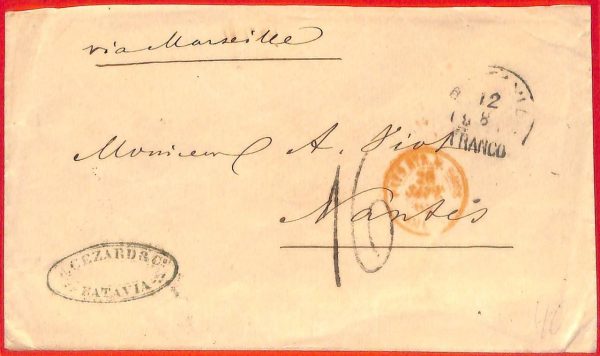 via Marseille
12
18
FRANCO
Monsieur A. Viot
16
Nantes
CEZARD & Co
BATAVIA